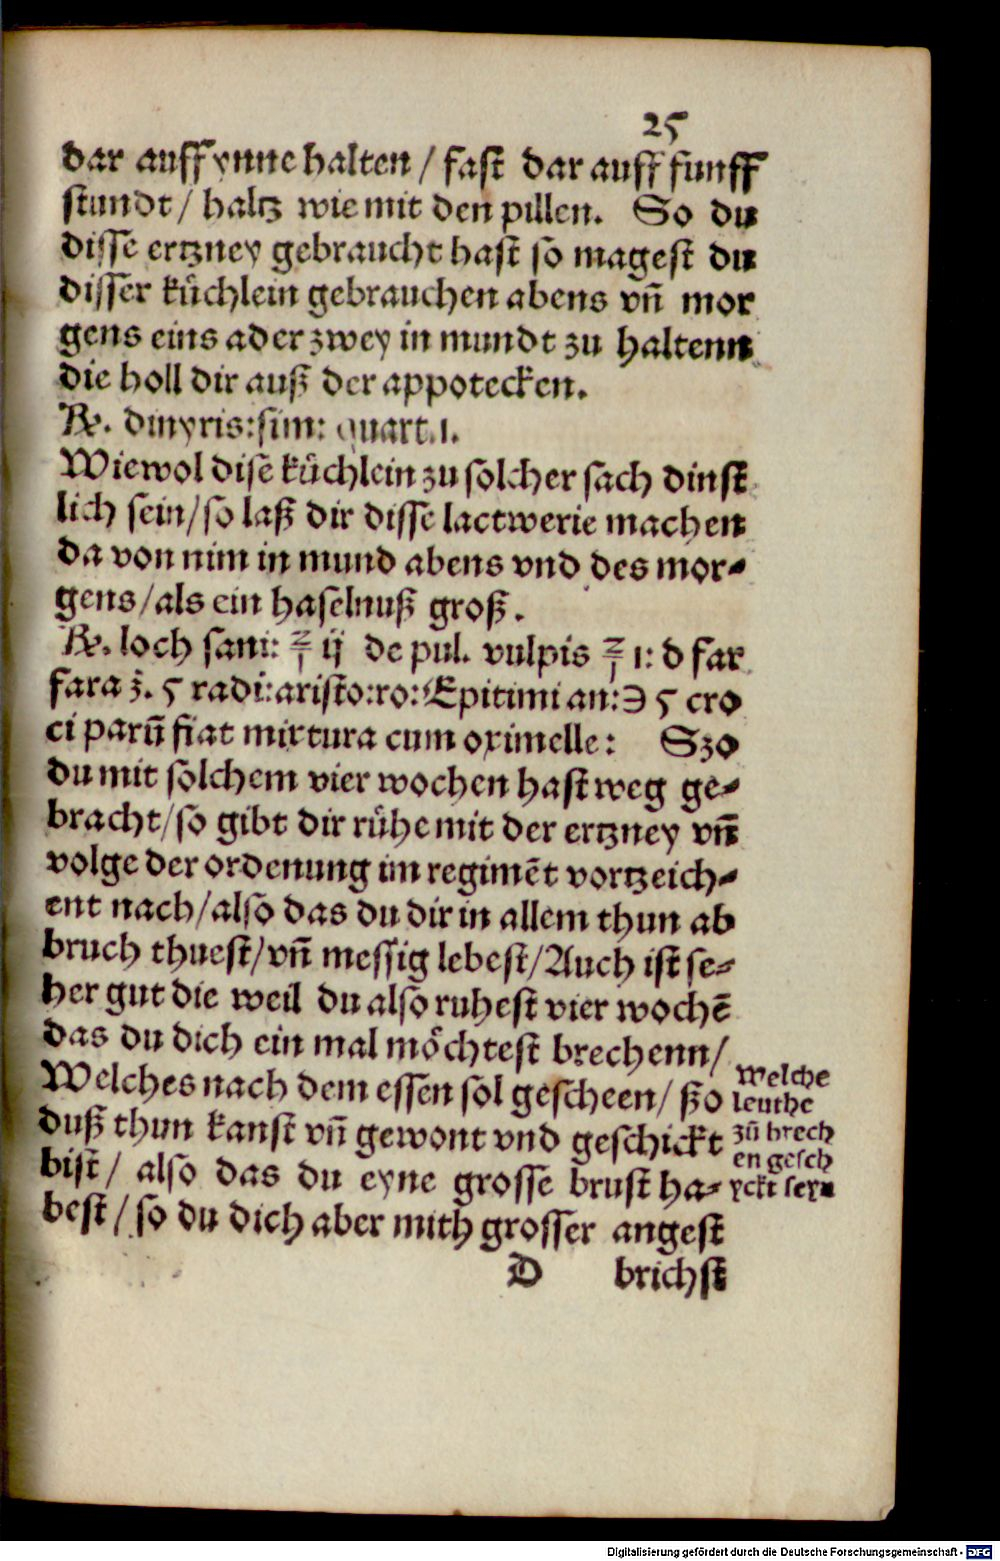 25
dar auff ynne halten / fast dar auff funff
stundt / haltz wie mit den pillen. So du
disse ertzney gebraucht hast so magest du
disser kůchlein gebrauchen abens vñ mor
gens eins ader zwey in mundt zu haltenn
die holl dir auß der appotecken.
℞. diayris: sim: quart.1.
Wiewol dise kůchlein zu solcher sach dinst
lich sein/so laß dir disse lactwerie machen
da von nim in mund abens vnd des mor⸗
gens/als ein haselnuß groß.
℞. loch sani: ℥ ij de pul. vulpis ℥ 1: d far
fara ʒ. 5 radi:aristo:ro:Epitimi an:℈ 5 cro
ci parũ fiat mixtura cum oximelle: Szo
du mit solchem vier wochen hast weg ge⸗
bracht/so gibt dir růhe mit der ertzney vñ
volge der ordenung im regimēt vortzeich⸗
ent nach/also das du dir in allem thun ab
bruch thuest/vñ messig lebest/Auch ist se⸗
her gut die weil du also ruhest vier wochē
das du dich ein mal mőchtest brechenn/
Welches nach dem essen sol gescheen/ ßo
duß thun kanst vñ gewont vnd geschickt
bist/ also das du eyne grosse brust ha⸗
best/so du dich aber mith grosser angest
welche
leuthe
zů brech
en gesch
yckt sey⸗
D brichst
Digitalisierung gefördert durch die Deutsche Forschungsgemeinschaft - DFG